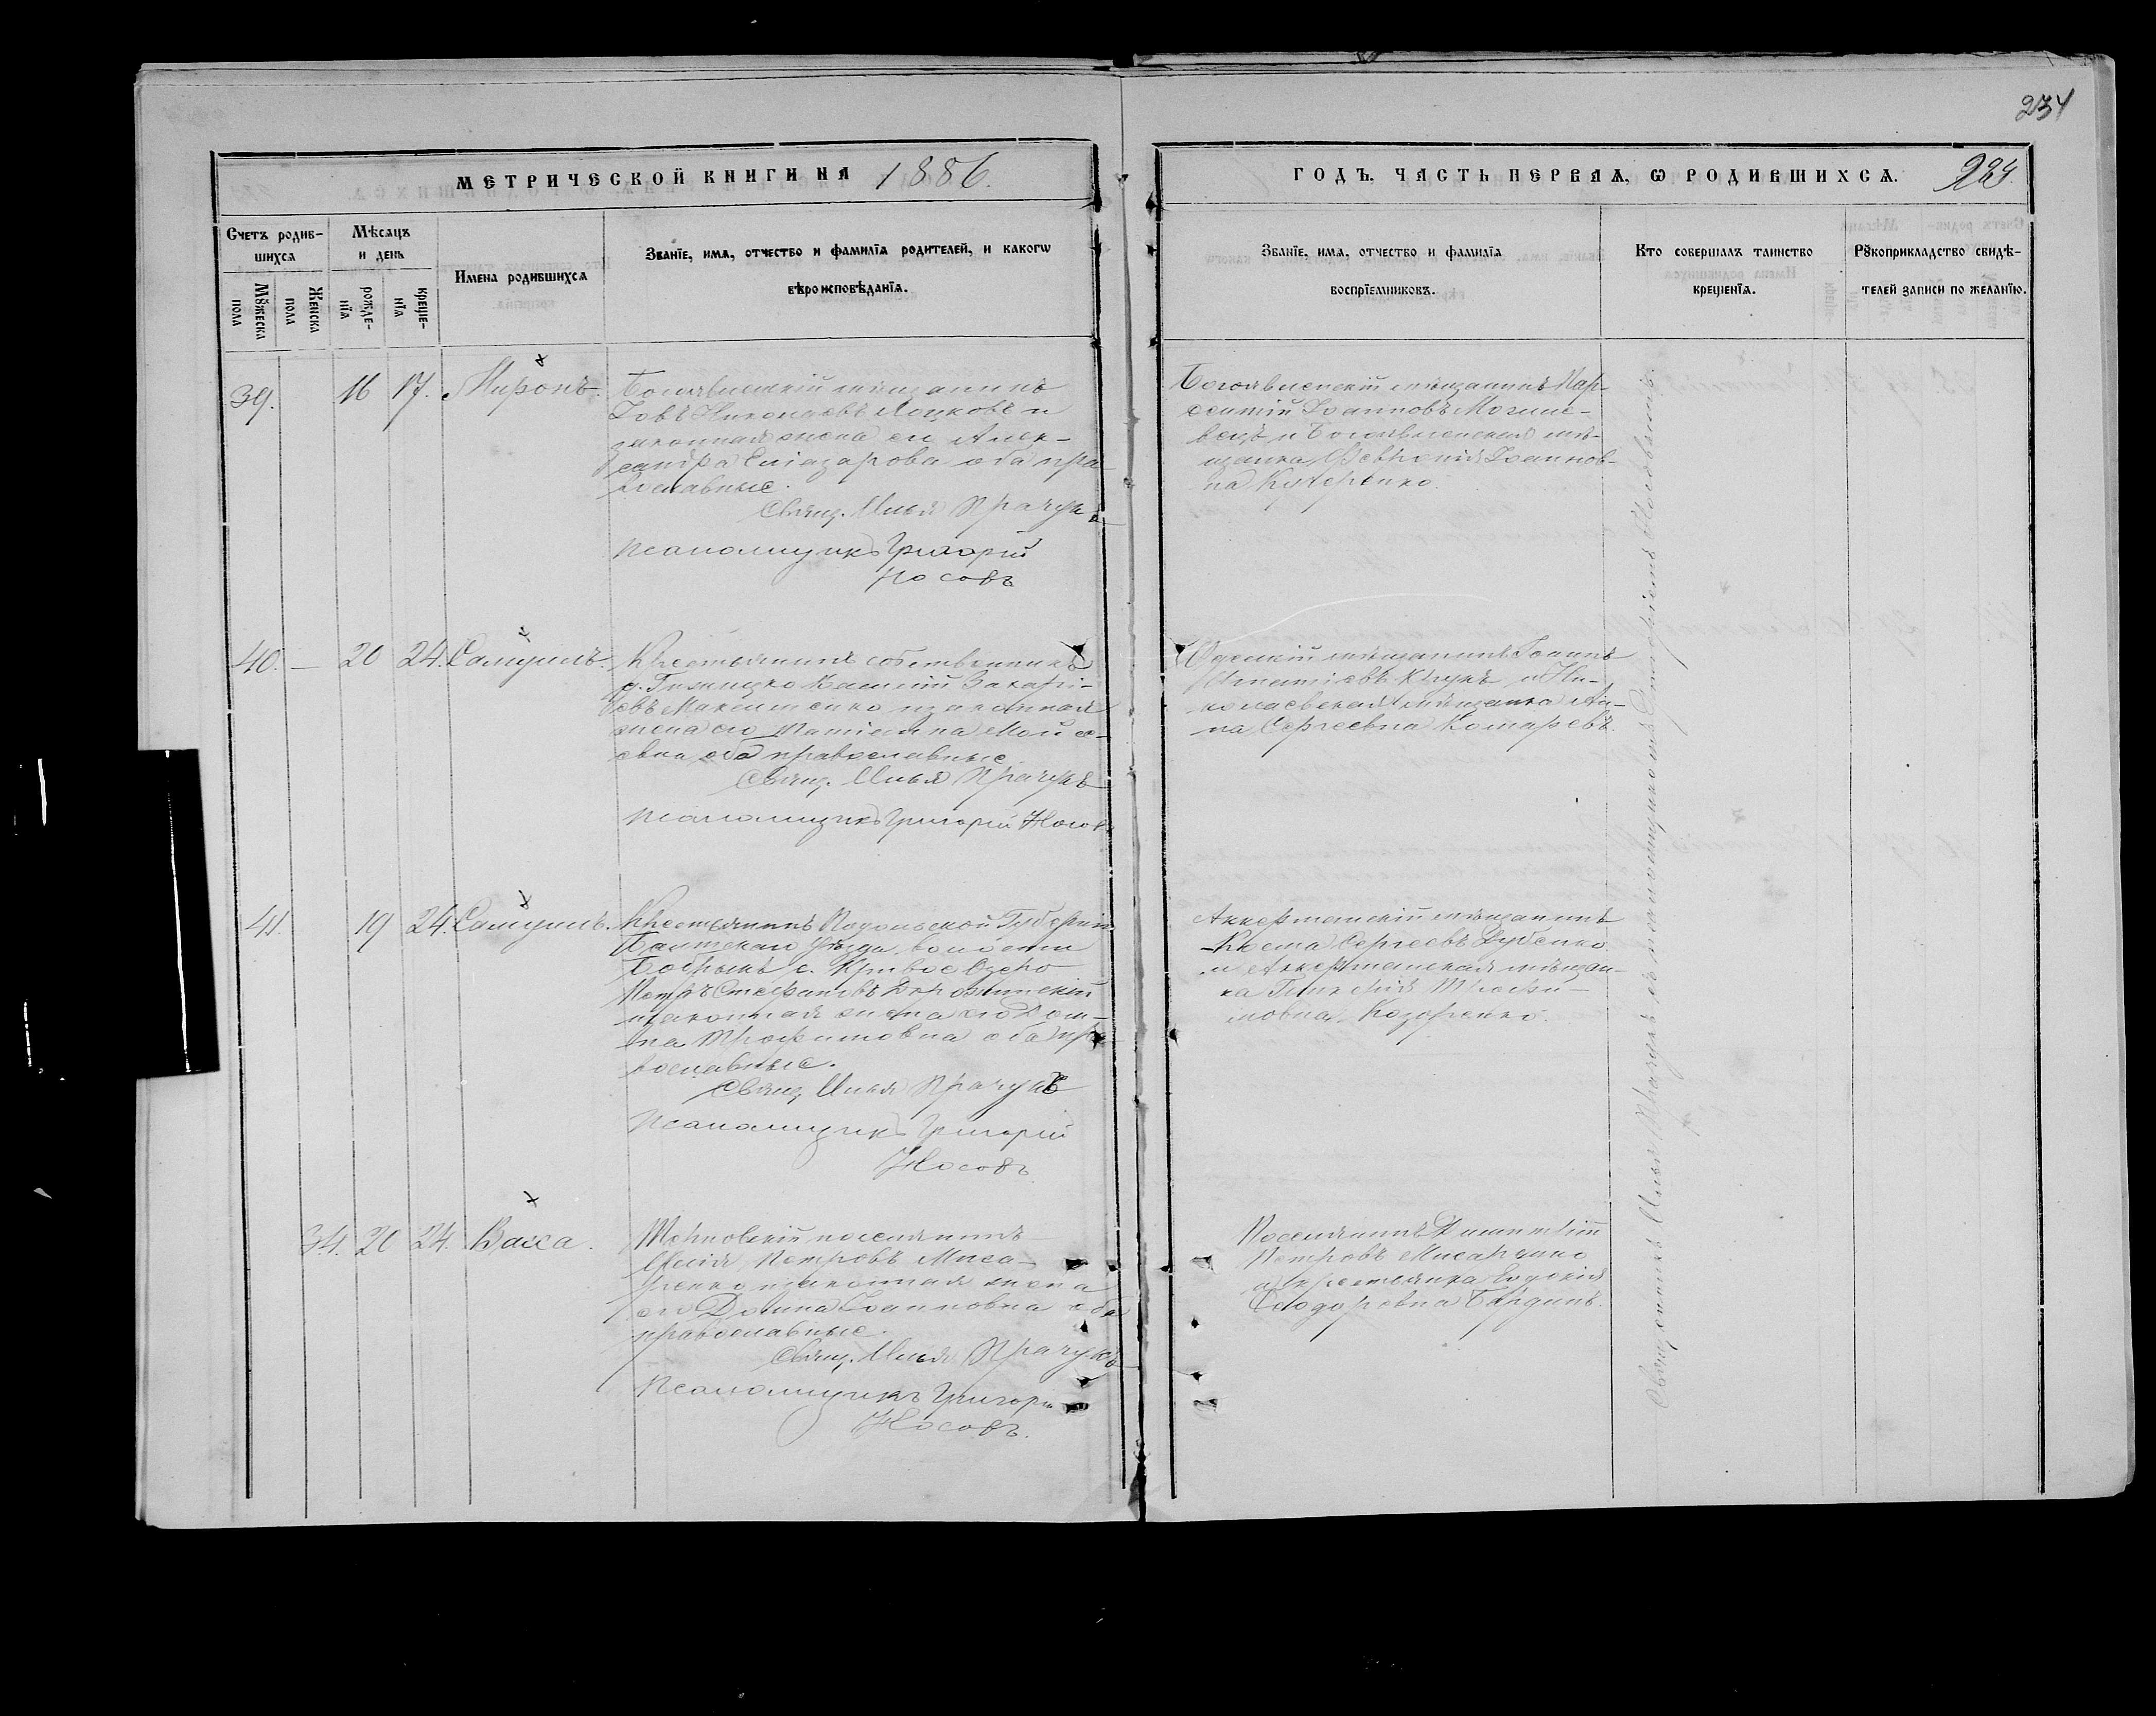 234
МЕТРИЧЕСКОЙ КНИГИ НА 1886.
ГОДЪ, ЧАСТЬ ПЕРВАЯ, Ѡ РОДИВШИХСѦ. 224.
Счетъ родив-
шихсѧ
Мꙋжеска пола
Женска пола
Мѣсѧцъ
и день
рожде-
нїѧ
креще-
нїѧ
Имена родившихсѧ
Званїе, имѧ, отчество и фамилїѧ родителей, и какогѡ
вѣроисповѣданїѧ.
Званїе, имѧ, отчество и фамилїѧ
воспрїемниковъ.
Кто совершалъ таинство
крещенїѧ.
Рꙋкоприкладство свидѣ-
телей записи по желанїю.
39. 16 17. Миронъ.
Богоявленскій мѣщанинъ
Іовъ Николаевъ и
законная жена его Алек-
сандра Еліазарова оба пра-
вославные.
Свящ. Илья Прачукъ
Псаломщикъ Григорій
Носовъ
Богоявленскій мѣщанинъ Пар-
ѳентій Іоанновъ Могиле-
вецъ и Богоявленская мѣ-
щанка Февронія Іоаннов-
на Кучеренко.
40. – 20 24. Самуилъ.
Крестьянинъ собственникъ
Василій Захарі-
евъ Максименко и законная
жена его Татіанна Мойсе-
евна, оба православные
Свящ. Илья Прачукъ
Псаломщикъ Григорій Носовъ
Одесскій мѣщанинъ Іоаннъ
Игнатіевъ Крукъ и Ни-
колаевская мѣщанка Ан-
на Сергеевна Комаревъ.
41. 19 24. Самуилъ.
Крестьянинъ Подольской Губерніи
Балтскаго Уѣзда, волости
с. Кривое Озеро
Петръ Стефановъ
и законная жена его Дом-
на Трофимовна оба пра-
вославные.
Свящ. Илья Прачукъ
Псаломщикъ Григорій
Носовъ.
Аккерманскій мѣщанинъ
Сергеевъ Дубенко
и Аккерманская мѣщан-
ка Гликерія Трофи-
мовна Козоренко.
34. 20 24. Васса.
Терновскій поселянинъ
Петровъ Миса-
ренко и законная жена
его Домна Іоанновна оба
православные.
Свящ. Илья Прачукъ
Псаломщикъ Григорій
Носовъ.
Поселянинъ Димитрій
Петровъ Мисаренко
и крестьянка Евдокія
Ѳеодоровна
Священникъ Илья Прачукъ съ псаломщикомъ